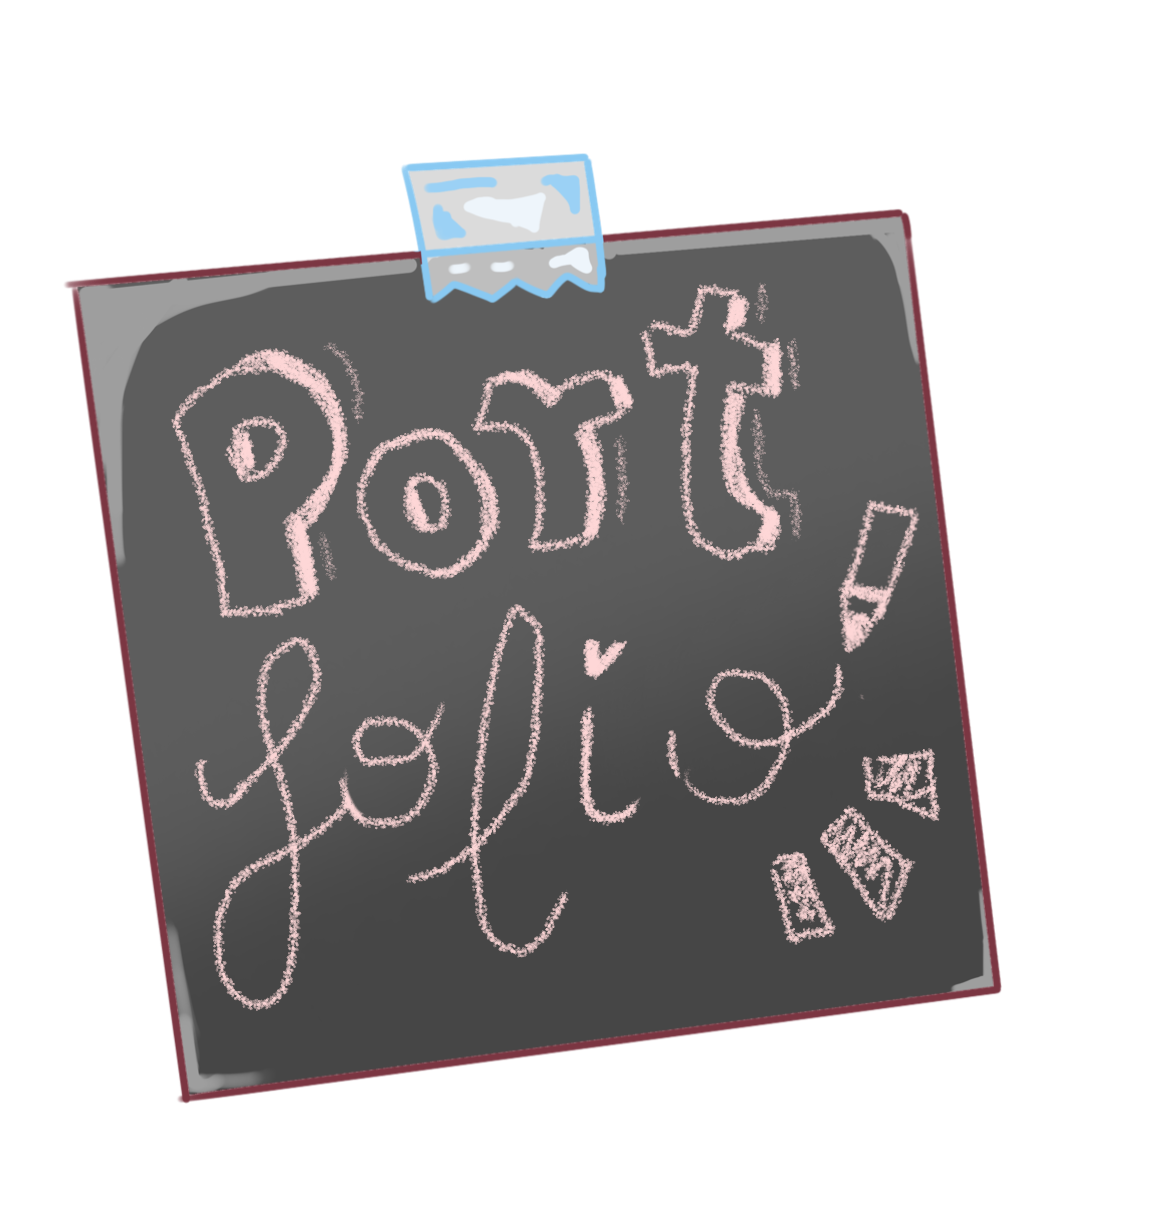 Port
folio